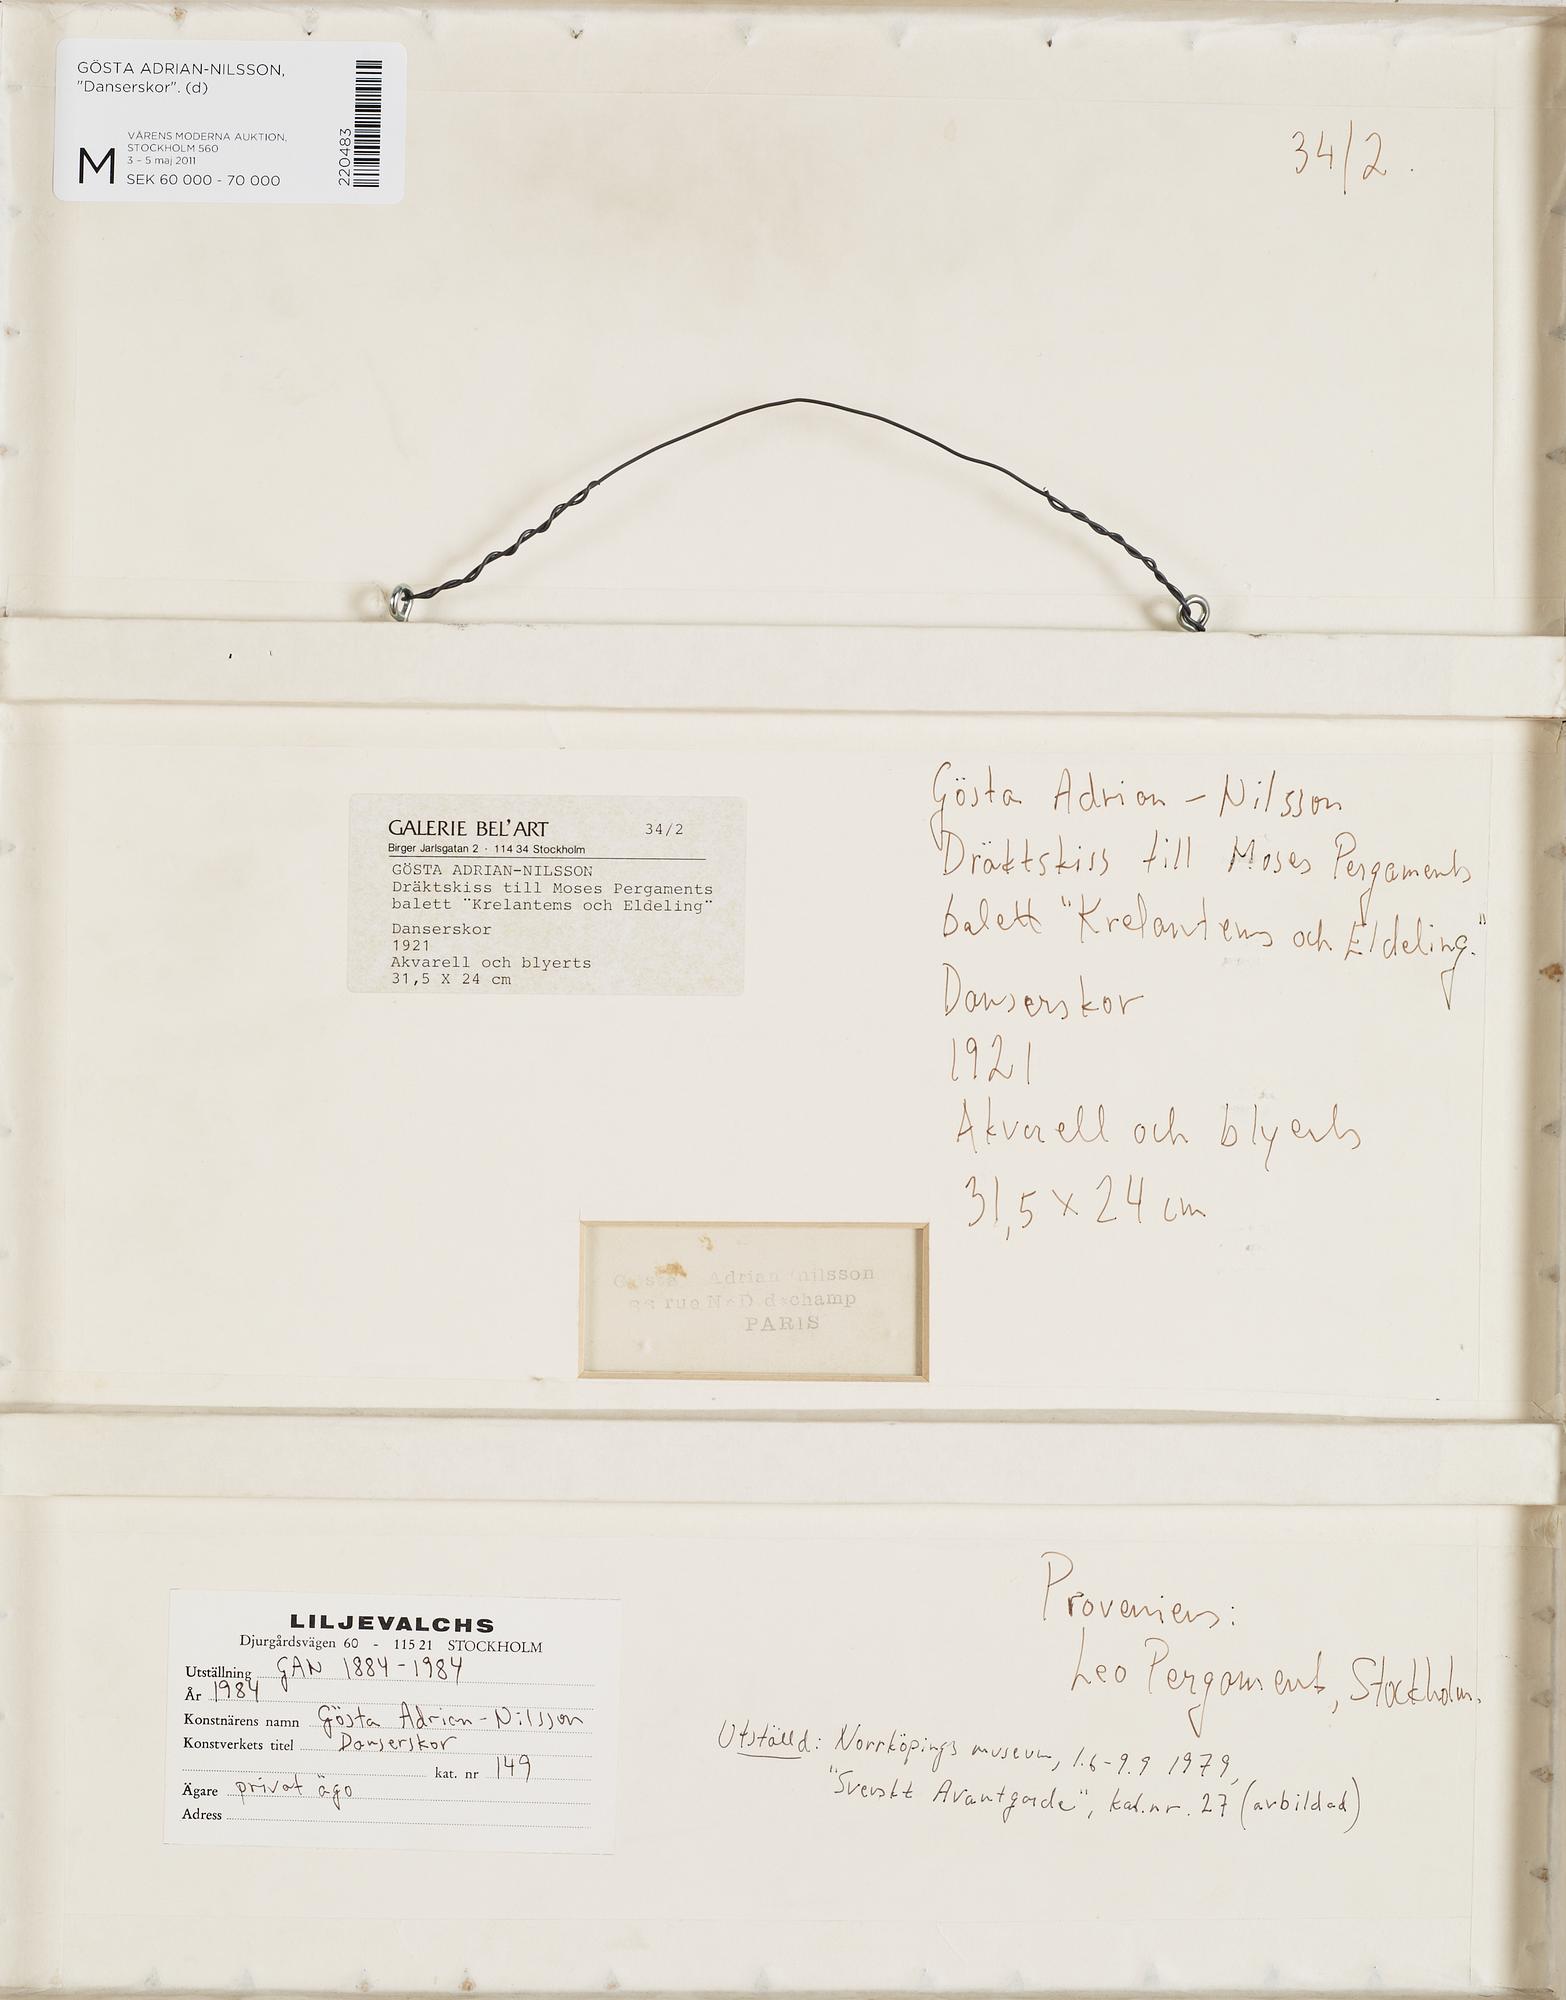 GÖSTA ADRIAN-NILSSON,
"Danserskor". (d)
VÅRENS MODERNA AUKTION,
STOCKHOLM 560
3 – 5 maj 2011
M
SEK 60 000 - 70 000
220483
34/2.
GALERIE BEL'ART 34/2
Birger Jarlsgatan 2 · 114 34 Stockholm
GÖSTA ADRIAN-NILSSON
Dräktskiss till Moses Pergaments
balett "Krelantems och Eldeling"
Danserskor
1921
Akvarell och blyerts
31,5 X 24 cm
Gösta Adrian-Nilsson
Dräktskiss till Moses Pergaments
balett "Krelantems och Eldeling."
Danserskor
1921
Akvarell och blyerts
31,5 x 24 cm
Gösta Adrian nilsson
rue N.D. champ
PARIS
LILJEVALCHS
Djurgårdsvägen 60 - 115 21 STOCKHOLM
Utställning GAN 1884-1984
År 1984
Konstnärens namn Gösta Adrian-Nilsson
Konstverkets titel Danserskor
kat. nr 149
Ägare privat ägo
Adress
Proveniens:
Leo Pergament, Stockholm.
Utställd: Norrköpings museum, 1.6-9.9 1979,
"Svenskt Avantgarde", kat.nr. 27 (avbildad)